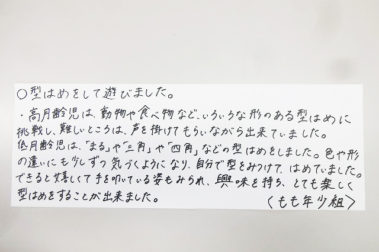 ○型はめをして遊びました。
・高月齢児は、動物や食べ物など、いろいろな形のある型はめに
挑戦し、難しいところは、声を掛けてもらいながら出来ていました。
低月齢児は、「まる」や「三角」や「四角」などの型はめをしました。色や形
の違いにも少しずつ気づくようになり、自分で型をみつけて、はめていました。
できると嬉しくて手を叩いている姿もみられ、興味を持ち、とても楽しく
型はめをすることが出来ました。
〈もも年少組〉